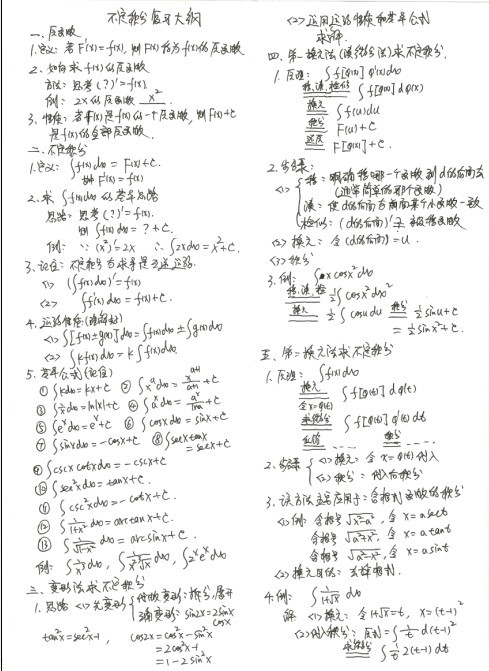 不定积分复习大纲
一、原函数
1.定义：若F'(x)=f(x)，则F(x)称为f(x)的原函数
2、如何求f(x)的原函数
方法：思考(?)'=f(x).
例：2x的原函数 x²
3、性质：若F(x)是f(x)的一个原函数，则F(x)+C
是f(x)的全部原函数.
二、不定积分
1.定义：∫f(x)dx = F(x)+C.
其中 F'(x)=f(x)
2.求 ∫f(x)dx 的基本思路
思路：思考(?)'=f(x).
则 ∫f(x)dx = ?+C.
例：∵(x²)'=2x ∴∫2xdx=x²+C.
3.记住：不定积分与求导是互逆运算.
<1> (∫f(x)dx)'=f(x)
<2> ∫f'(x)dx=f(x)+C.
4.运算性质(理解好)
<1>∫[f(x)±g(x)]dx=∫f(x)dx±∫g(x)dx
<2>∫kf(x)dx=k∫f(x)dx.
5.基本公式(记住)
①∫kdx=kx+C ②∫x^a dx=x^(a+1)/(a+1)+C
③∫1/x dx=ln|x|+C ④∫a^x dx=a^x/lna+C
⑤∫e^x dx=e^x+C ⑥∫cosxdx=sinx+C
⑦∫sinxdx=-cosx+C ⑧∫secxtanx
=secx+C
⑨∫cscxcotxdx=-cscx+C
⑩∫sec²xdx=tanx+C.
⑪∫csc²xdx=-cotx+C.
⑫∫1/(1+x²)dx=arctanx+C.
⑬∫1/√(1-x²)dx=arcsinx+C.
例：∫1/x³dx，∫1/(x²√x)dx，∫2^x e^x dx
三、变形法求不定积分
1.思路 <1>先变形 代数变形：拆分,展开
三角变形：sin2x=2sinx
cosx
tan²x=sec²x-1，cos2x=cos²x-sin²x
=2cos²x-1
=1-2sin²x
<2>运用运算性质和基本公式
求解.
四、第一换元法(凑微分法)求不定积分.
1.原理：∫f[φ(x)]φ'(x)dx
移,凑,检验 ∫f[φ(x)]dφ(x)
换元 ∫f(u)du
积分 F(u)+C
还原 F[φ(x)]+C.
2.步骤：
<1> 移：明确移哪一个函数到d的后面去
(通常简单的那个函数)
凑：使d的后面与前面某个函数一致
检验：(d的后面)'=被移函数
<2>换元：令(d的后面)=u.
<3>积分
3.例：∫xcosx²dx
移,凑,检 ½∫cosx²dx²
换元 ½∫cosudu 积分 ½sinu+C
=½sinx²+C.
五、第二换元法求不定积分
1.原理：∫f(x)dx
换元
令x=φ(t) ∫f[φ(t)]dφ(t)
求微分 ∫f[φ(t)]φ'(t)dt
化简 …… 积分 ……
2.步骤 <1>换元：令x=φ(t)代入
<2>积分：代入后积分
3.该方法主要应用于：含根式函数的积分
<1>例：含根号√(x²-a²)，令x=asect
含根号√(a²+x²)，令x=atant
含根号√(a²-x²)，令x=asint
<2>换元目的：去掉根式.
4.例：∫1/(1+√x)dx
解 <1>换元：令1+√x=t，x=(t-1)²
<2>代入积分：原式=∫1/t d(t-1)²
求微分 ∫1/t 2(t-1)dt